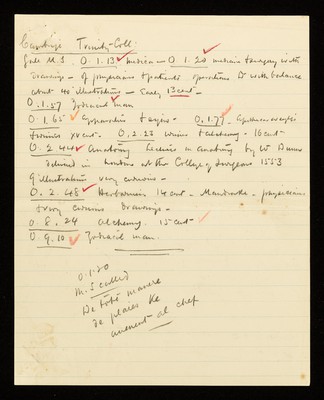 Cambridge Trinity Coll:
Gale M.S. O. 1. 13 medica — O. 1. 20 medicine & surgery with
Drawings — of physicians & patients operations with balance
about 40 illustrations — Early 13 cent —
O. 1. 57 Zodiacal man
O. 1. 65 — O. 1. 77 —
xv cent — O. 2. 23 urines & alchemy — 16 cent —
O. 2. 44 anatomy Lecture in anatomy by W Bunn
delivered in London at the College of Surgeons 1553
9 illustrations very curious —
O. 2. 48 Herbarium 14 cent — Mandrake — physicians
& very curious Drawings —
O. 8. 24 alchemy. 15 cent —
O. 9. 10 Zodiacal man.
O. 1. 20
M.S called
De tote manere
de plaies ke
avenent al chef